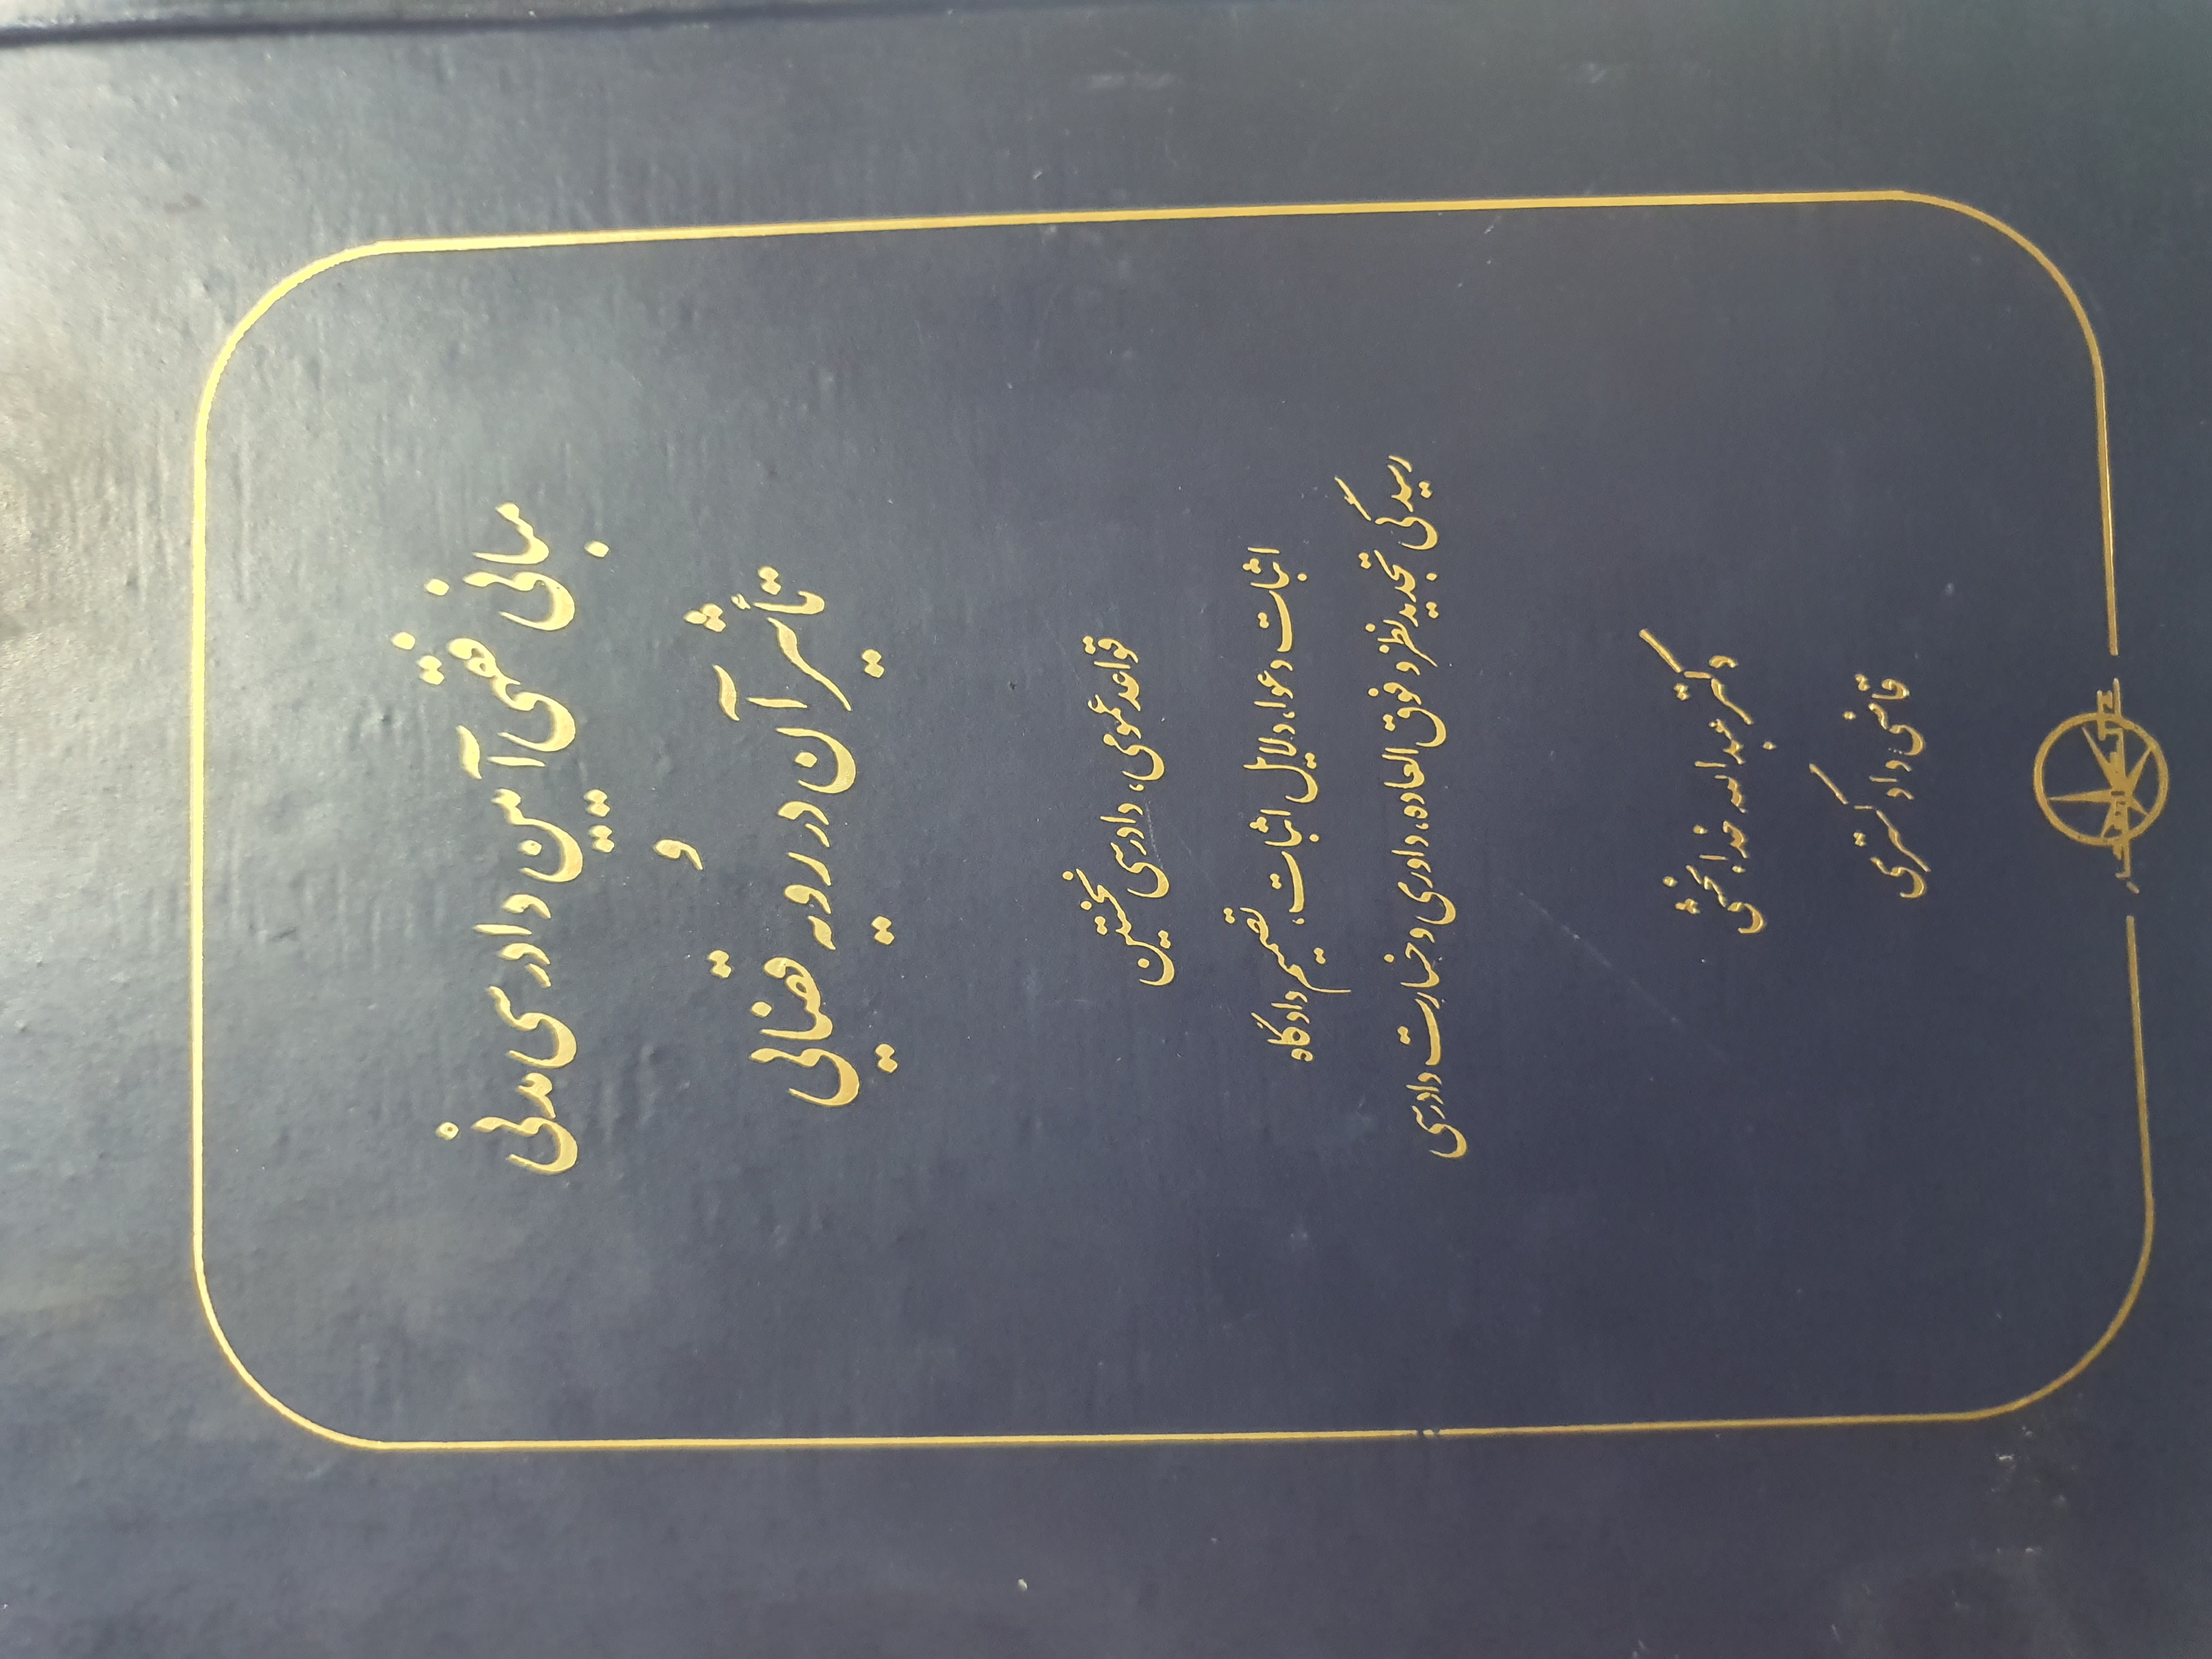 مبانی فقهی آیین دادرسی مدنی
و
تأثیر آن در رویه قضایی
قواعد عمومی، دادرسی نخستین
اثبات دعوا، دلایل اثبات، تصمیم دادگاه
رسیدگی تجدیدنظر و فوق العاده، داوری و خسارت دادرسی
دکتر عبدالله خدابخشی
قاضی دادگستری
شرکت سهامی انتشار